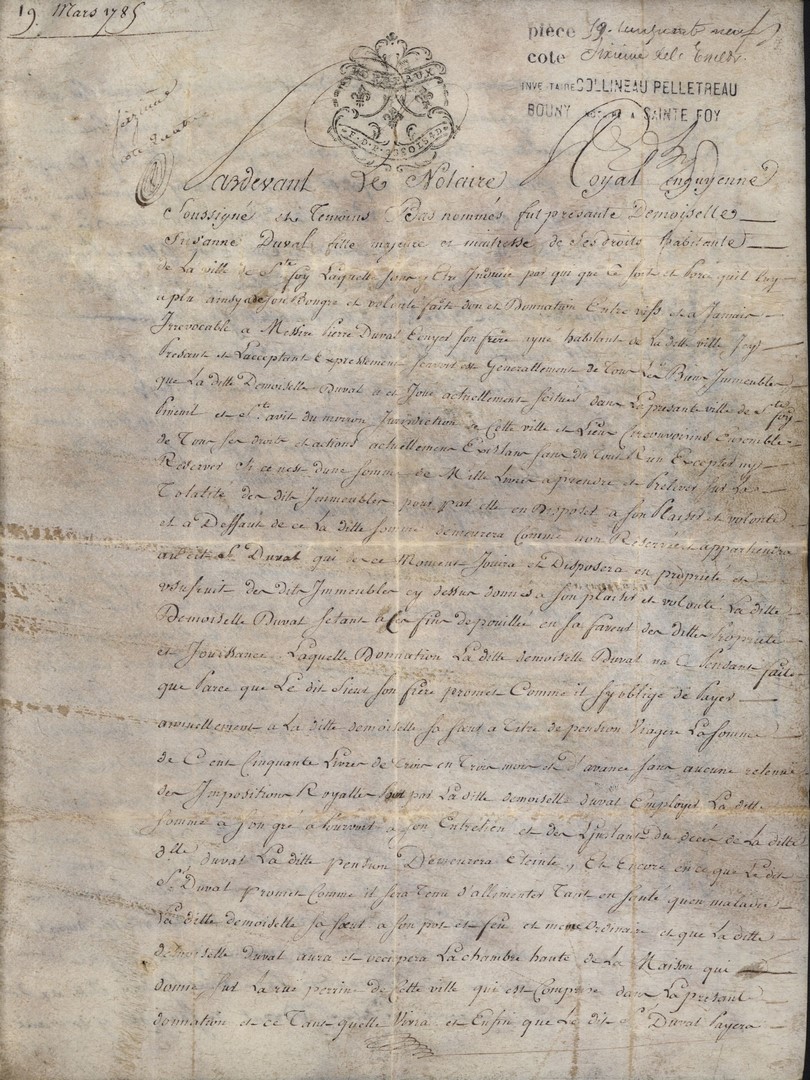 19. Mars 1785
pièce 59. cinquante neuf
cote Sixieme
INVENTAIRE COLLINEAU PELLETREAU
BOUNY NOTAIRE A SAINTE FOY
BORDEAUX
Pardevant Le Notaire Royal en guyenne
Soussigné et Temoins Bas nommés fut presante Demoiselle
Suzanne Duval fille majeure et maitresse de ses droits habitante
de La ville de Ste foy Laquelle pour y Etre par qui que Ce soit et parce quil luy
a plu de son Bongré et volonté faitte don et Donnation Entre vifs et a Jamais
Irrevocable a Messire Pierre Duval Ecuyer son frere ayné habitant de La ditte ville Ste foy
Presant et Lacceptant Expressement sçavoir est Generallement de Tous Les Biens Immeubles
que La ditte Demoiselle Duval a et Jouit actuellement scitués dans La presante ville de Ste foy
Pineuil et St. avit du moiron Jurisdiction de Cette ville et Lieux Circonvoisins Ensemble
de Tous ses droits et actions actuellement Existans sans du Tout Rien Excepter ny
Reserver Si ce nest d'une somme de Mille Livres a prendre et Preliver sur La
Totalité des dits Immeubles pour par elle en Disposer a son Plaisir et volonté
et a Deffaut de ce La ditte somme demeurera Comme non Reservée et appartiendra
audit Sr. Duval qui de ce Moment Jouira et Disposera en propriete et
usufruit des dits Immeubles cy dessus donnés a son plaisir et volonté La ditte
Demoiselle Duval setant a Ces fins depouillée en sa faveur des dittes Propriete
et Jouissance. Laquelle Donnation La ditte demoiselle Duval na Cependant faite
que parce que Le dit Sieur son frere promet Comme il s'y oblige de Payer
annuellement a La ditte demoiselle sa sœur a Titre de pension Viagere La somme
de Cent Cinquante Livres de Trois en Trois mois et d'avance sans aucune retenue
des Impositions Royalles par La ditte demoiselle Duval Employer La ditte
somme a son gré a Pourvoir a son Entretien et des L'instant du deces de La ditte
dlle duval La ditte pension Demeurera eteinte, Et Encore en ce que Le dit
Sr. Duval promet Comme il sera Tenu d'allimenter Tant en santé quen maladie
La ditte demoiselle sa sœur a son pot et feu et meme ordinaire et que La ditte
demoiselle Duval aura et occupera La chambre haute de La Maison qui
donne sur La rue perrine de Cette ville qui est Comprise dans La presant
donnation et ce Tant quelle Vivra et Enfin que Le dit Sr. Duval payera